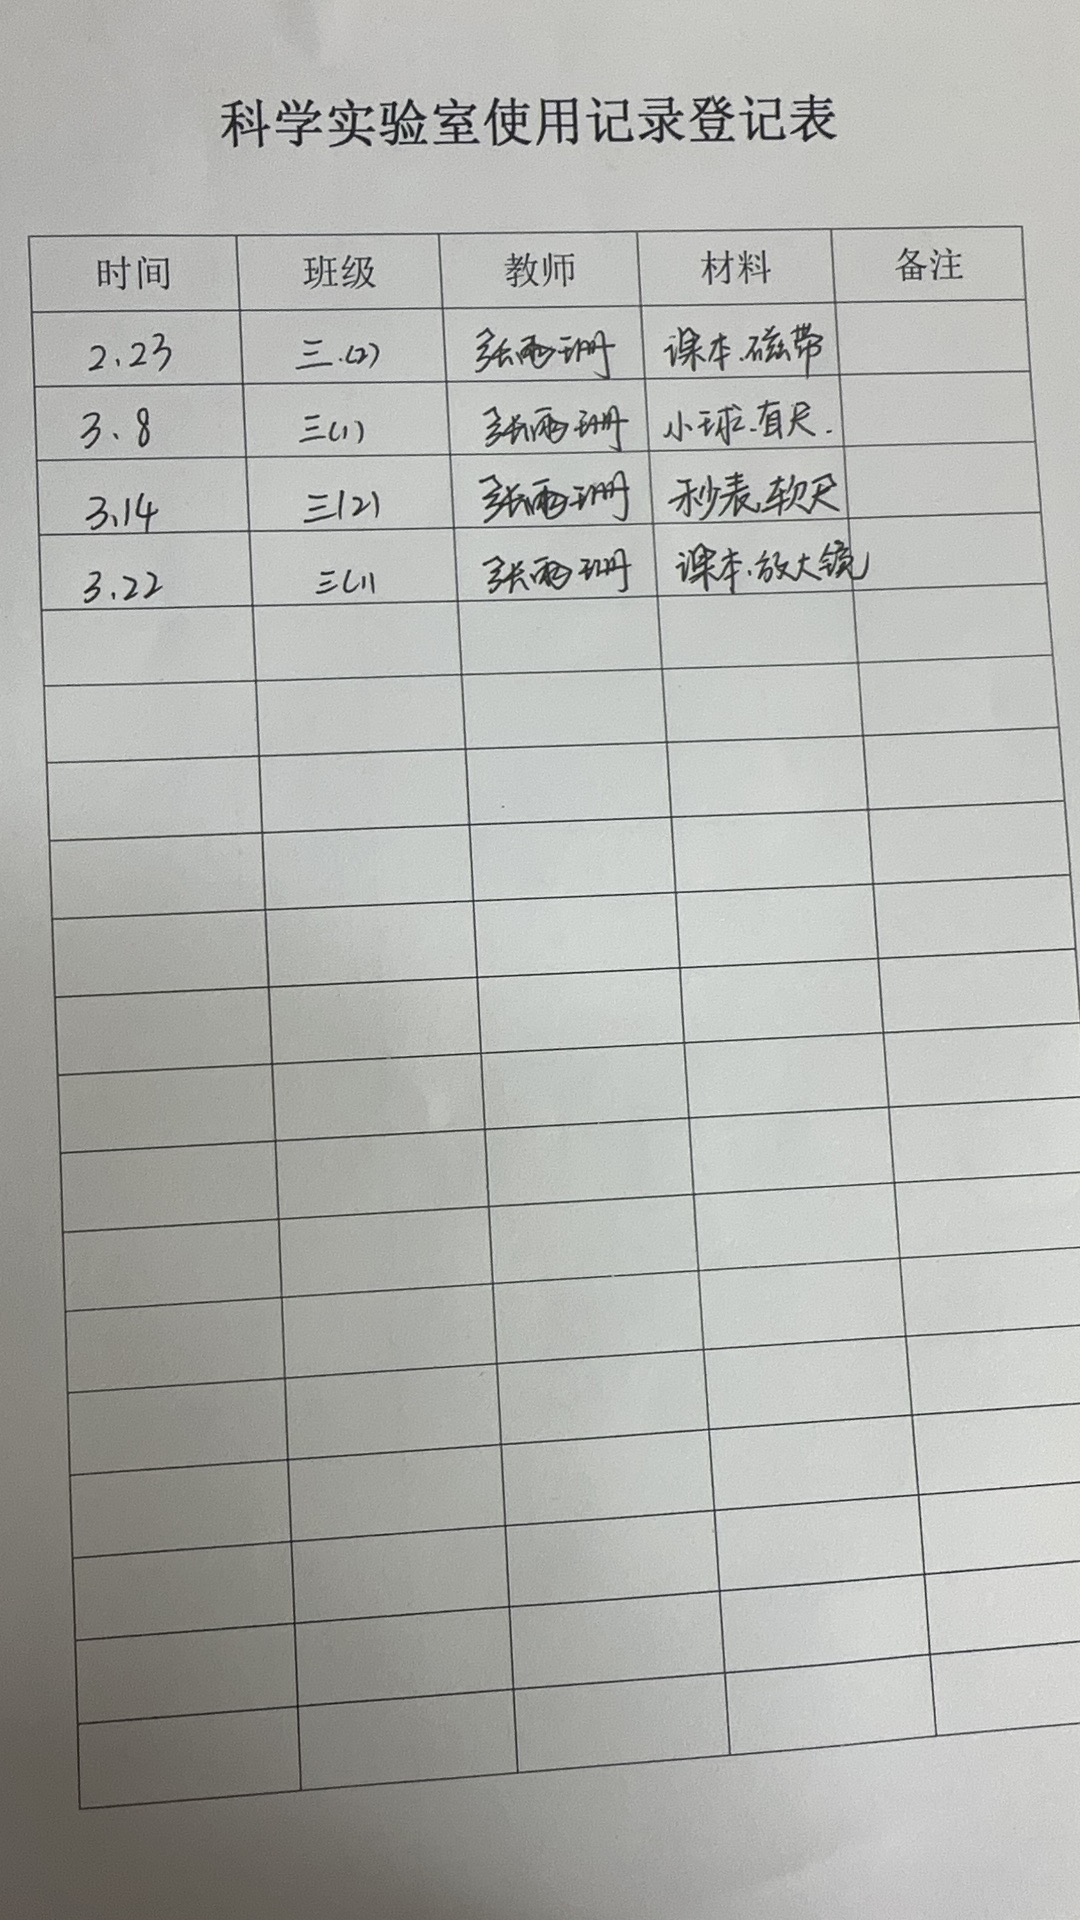 科学实验室使用记录登记表
时间 班级 教师 材料 备注
2.23 三.(2) 张雨珊 课本.磁带
3.8 三(1) 张雨珊 小球.直尺.
3.14 三(2) 张雨珊 秒表.软尺
3.22 三(1) 张雨珊 课本.放大镜